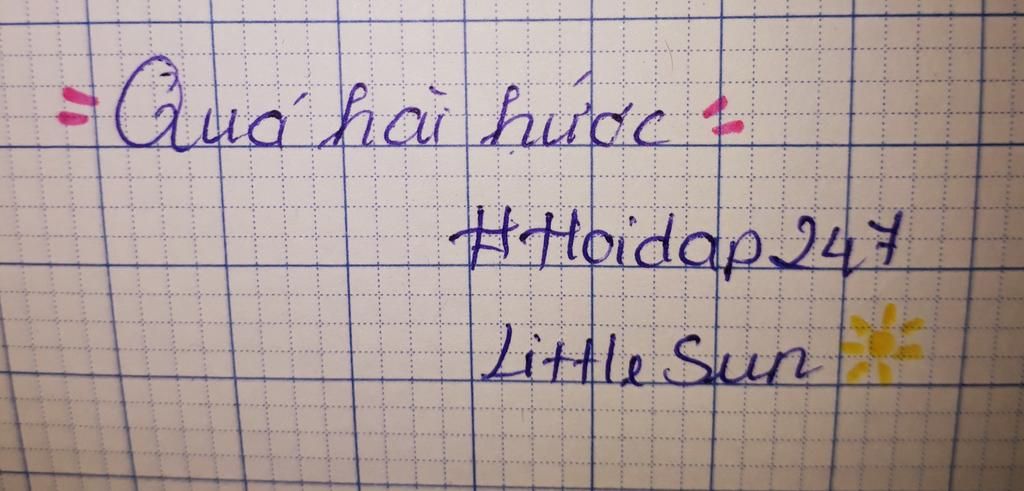 = Quá hài hước =
#Hoidap247
Little Sun